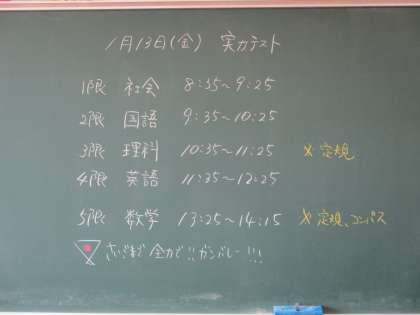 1月13日(金) 実力テスト
1限 社会 8:35～9:25
2限 国語 9:35～10:25
3限 理科 10:35～11:25 ※定規
4限 英語 11:35～12:25
5限 数学 13:25～14:15 ※定規、コンパス
さいごまで 全力で!!ガンバレー!!!